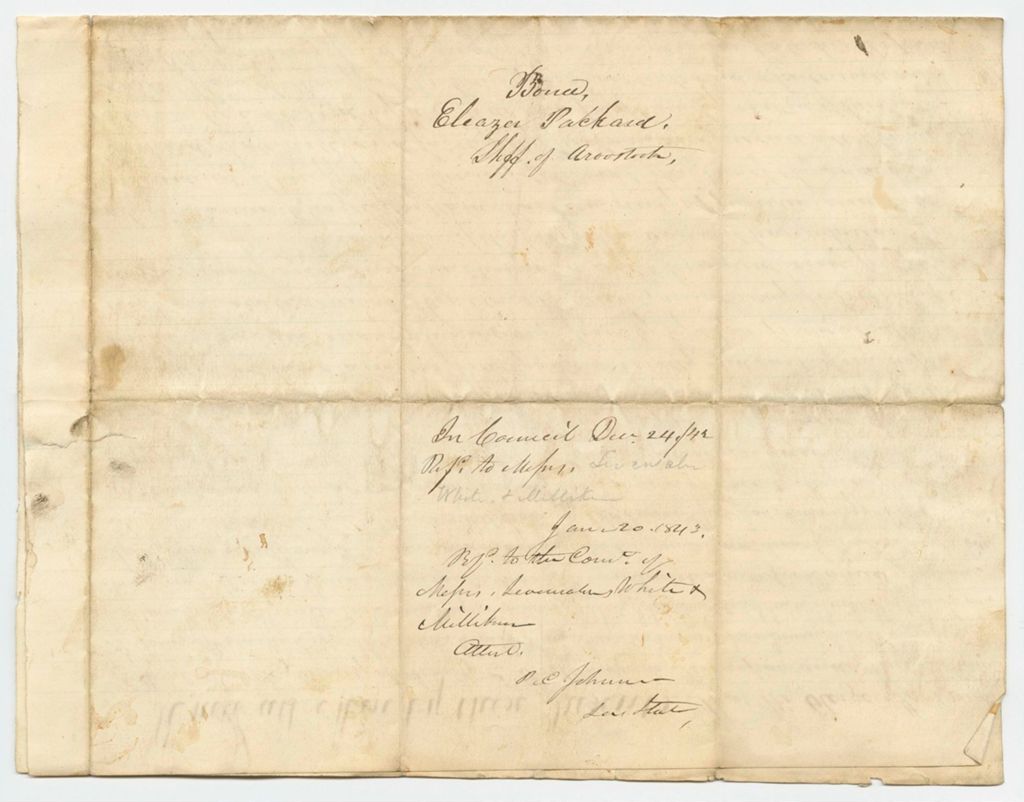 Bond,
Eleazer Packard.
Shff. of Aroostook,
In Council Decr. 24, /42
Refd. to Messrs. Levensaler
White & Milliken
Jan. 20. 1843.
Refd. to the Come. of
Messrs. Levensaler, White &
Milliken
Attest.
P. C. Johnson
Sec. State,